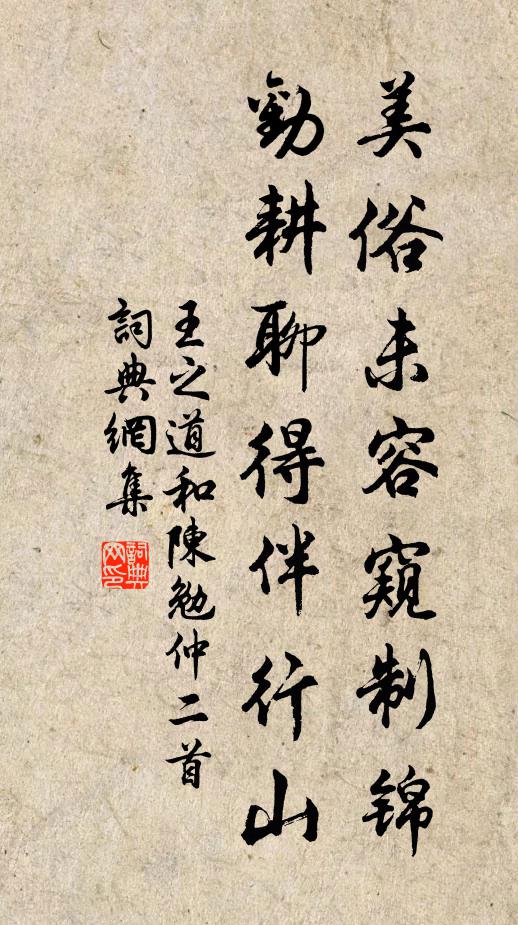 美俗未容窺制錦
勸耕聊得伴行山
王之道和陳勉仲二首
詞典網集
詞典網印